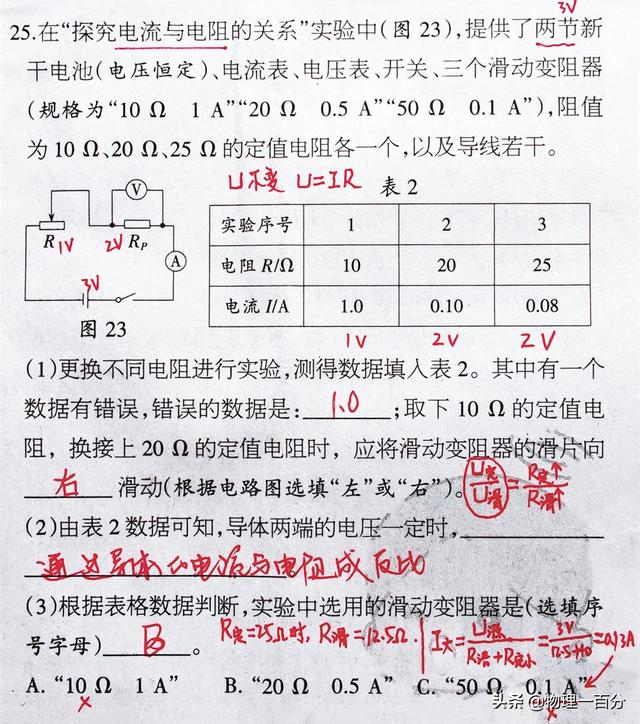 3V
25.在“探究电流与电阻的关系”实验中(图 23),提供了两节新
干电池(电压恒定)、电流表、电压表、开关、三个滑动变阻器
(规格为“10 Ω 1 A”“20 Ω 0.5 A”“50 Ω 0.1 A”),阻值
为 10 Ω、20 Ω、25 Ω 的定值电阻各一个,以及导线若干。
U不变 U=IR 表 2
V
R 1V 2V RP
A
3V
图 23
实验序号 1 2 3
电阻 R/Ω 10 20 25
电流 I/A 1.0 0.10 0.08
1V 2V 2V
(1)更换不同电阻进行实验,测得数据填入表 2。其中有一个
数据有错误,错误的数据是: 1.0 ;取下 10 Ω 的定值电
阻, 换接上 20 Ω 的定值电阻时, 应将滑动变阻器的滑片向
右 滑动(根据电路图选填“左”或“右”)。 U定/U滑 = R定↑/R滑↑
(2)由表 2 数据可知,导体两端的电压一定时,
通过导体的电流与电阻成反比
(3)根据表格数据判断,实验中选用的滑动变阻器是(选填序
号字母) B 。 R定=25Ω时, R滑=12.5Ω. I大=U源/R滑+R定小=3V/12.5+10=0.13A
A. “10 Ω 1 A” B. “20 Ω 0.5 A” C. “50 Ω 0.1 A”
× ×
头条 @物理一百分